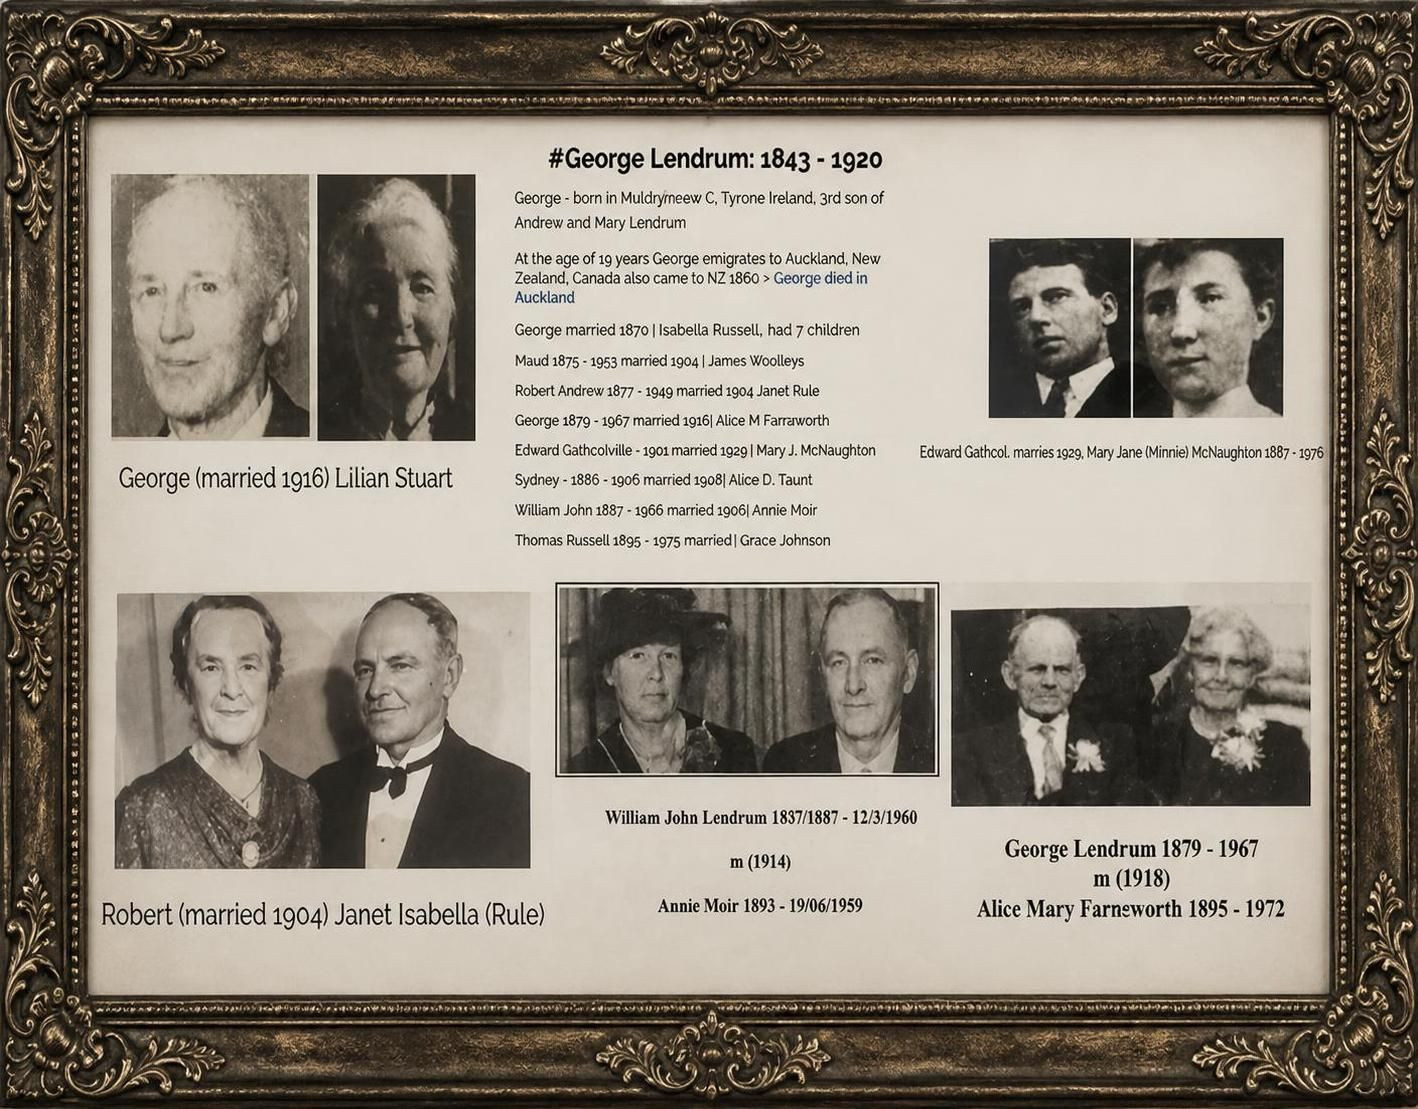 #George Lendrum: 1843 - 1920
George - born in Muldrymeew C, Tyrone Ireland, 3rd son of
Andrew and Mary Lendrum
At the age of 19 years George emigrates to Auckland, New
Zealand, Canada also came to NZ 1860 > George died in
Auckland
George married 1870 | Isabella Russell, had 7 children
Maud 1875 - 1953 married 1904 | James Woolleys
Robert Andrew 1877 - 1949 married 1904 Janet Rule
George 1879 - 1967 married 1916| Alice M Farraworth
Edward Gathcolville - 1901 married 1929 | Mary J. McNaughton
Sydney - 1886 - 1906 married 1908| Alice D. Taunt
William John 1887 - 1966 married 1906| Annie Moir
Thomas Russell 1895 - 1975 married| Grace Johnson
George (married 1916) Lilian Stuart
Edward Gathcol. marries 1929, Mary Jane (Minnie) McNaughton 1887 - 1976
Robert (married 1904) Janet Isabella (Rule)
William John Lendrum 1837/1887 - 12/3/1960
m (1914)
Annie Moir 1893 - 19/06/1959
George Lendrum 1879 - 1967
m (1918)
Alice Mary Farnsworth 1895 - 1972